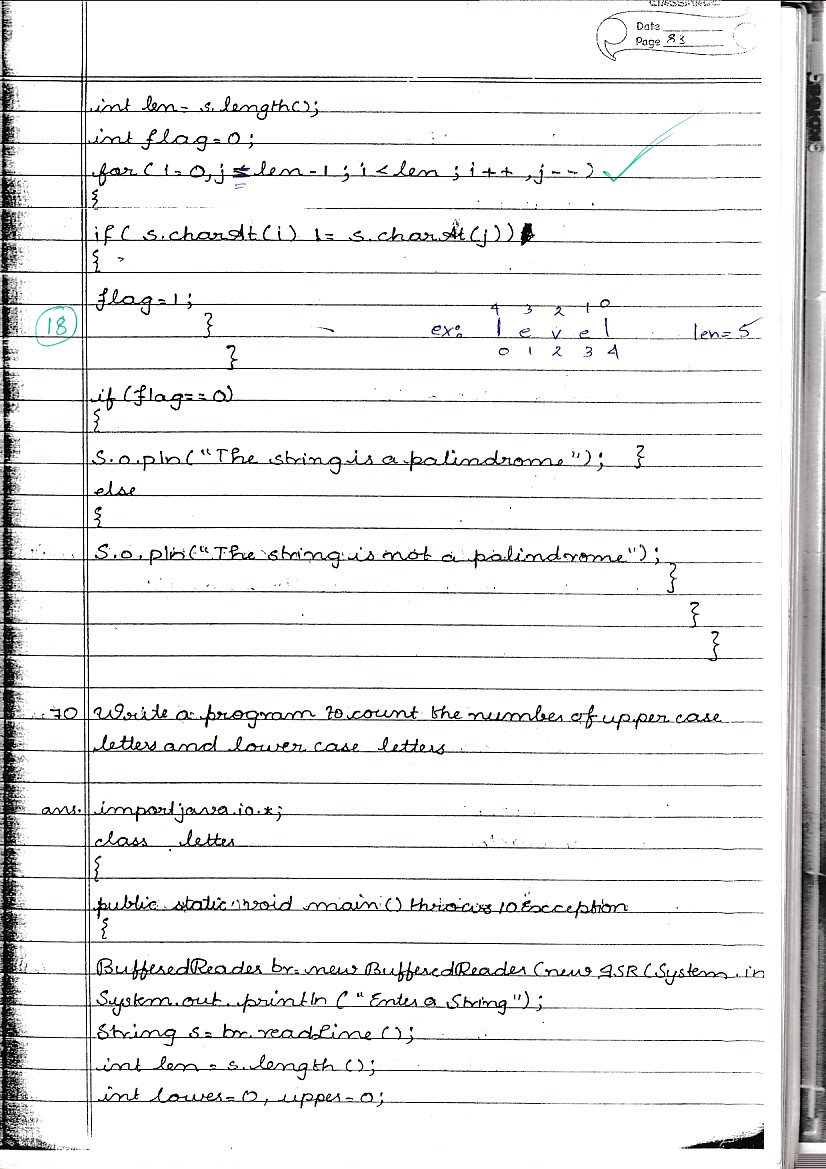 CLASSMATE
Date
Page 83
int len= s.length();
int flag=0;
for(i=0,j=len-1;i<len;i++,j--)
{
if(s.charAt(i) != s.charAt(j))
{
flag=1;
18
}
4 3 2 1 0
ex: l e v e l len=5
0 1 2 3 4
}
if(flag==0)
{
S.o.pln("The string is a palindrome"); }
else
{
S.o.pln("The string is not a palindrome");
}
}
}
70 Write a program to count the number of upper case
letters and lower case letters
ans. import java.io.*;
class letter
{
public static void main() throws IOException
{
BufferedReader br=new BufferedReader(new ISR(System.in
System.out.println("Enter a String");
String s=br.readLine();
int len = s.length();
int lower=0, upper=0;